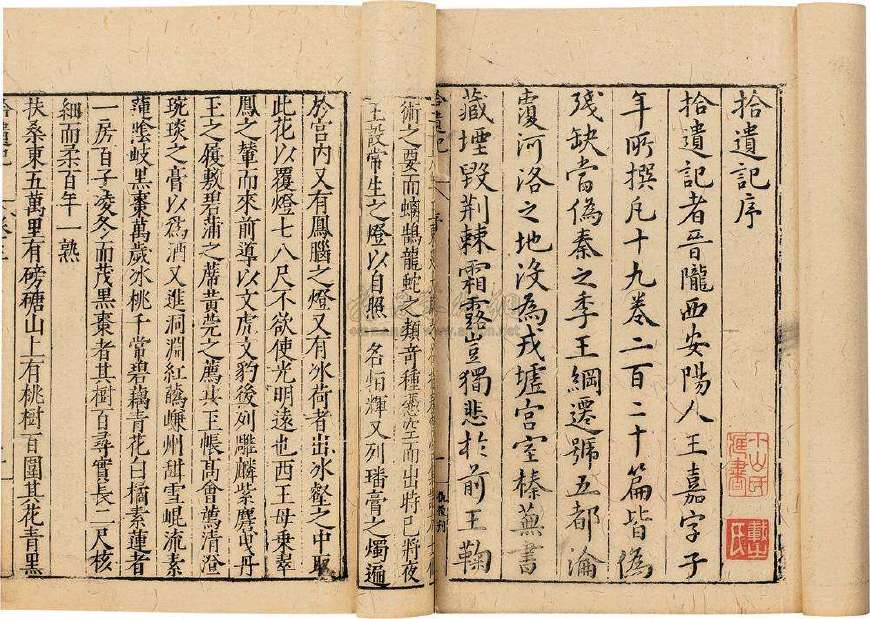 拾遺記序
拾遺記者晉隴西安陽人王嘉字子
年所撰凡十九卷二百二十篇皆偽
殘缺當偽秦之季王綱遷號五都淪
覆河洛之地沒為戎墟宮室榛蕪書
藏堙毀荆棘霜露豈獨悲於前王鞠
術之要而螭鵠龍蛇之類奇種憑空而出時已將夜
王設常生之燈以自照一名恒輝又列璠膏之燭遍
於宮内又有鳳腦之燈又有冰荷者出冰壑之中取
此花以覆燈七八尺不欲使光明遠也西王母乗翠
鳳之輦而來前導以文虎文豹後列雕麟紫麏曳丹
玉之履敷碧蒲之蓆黃莞之薦共玉帳髙會薦清澄
琬琰之膏以為酒又進洞淵紅蘤嵰州甜雪崐流素
蓮陰岐黑棗萬歲冰桃千常碧藕青花白橘素蓮者
一房百子凌冬而茂黑棗者其樹百尋實長二尺核
細而柔百年一熟
扶桑東五萬里有磅磄山上有桃樹百圍其花青黑